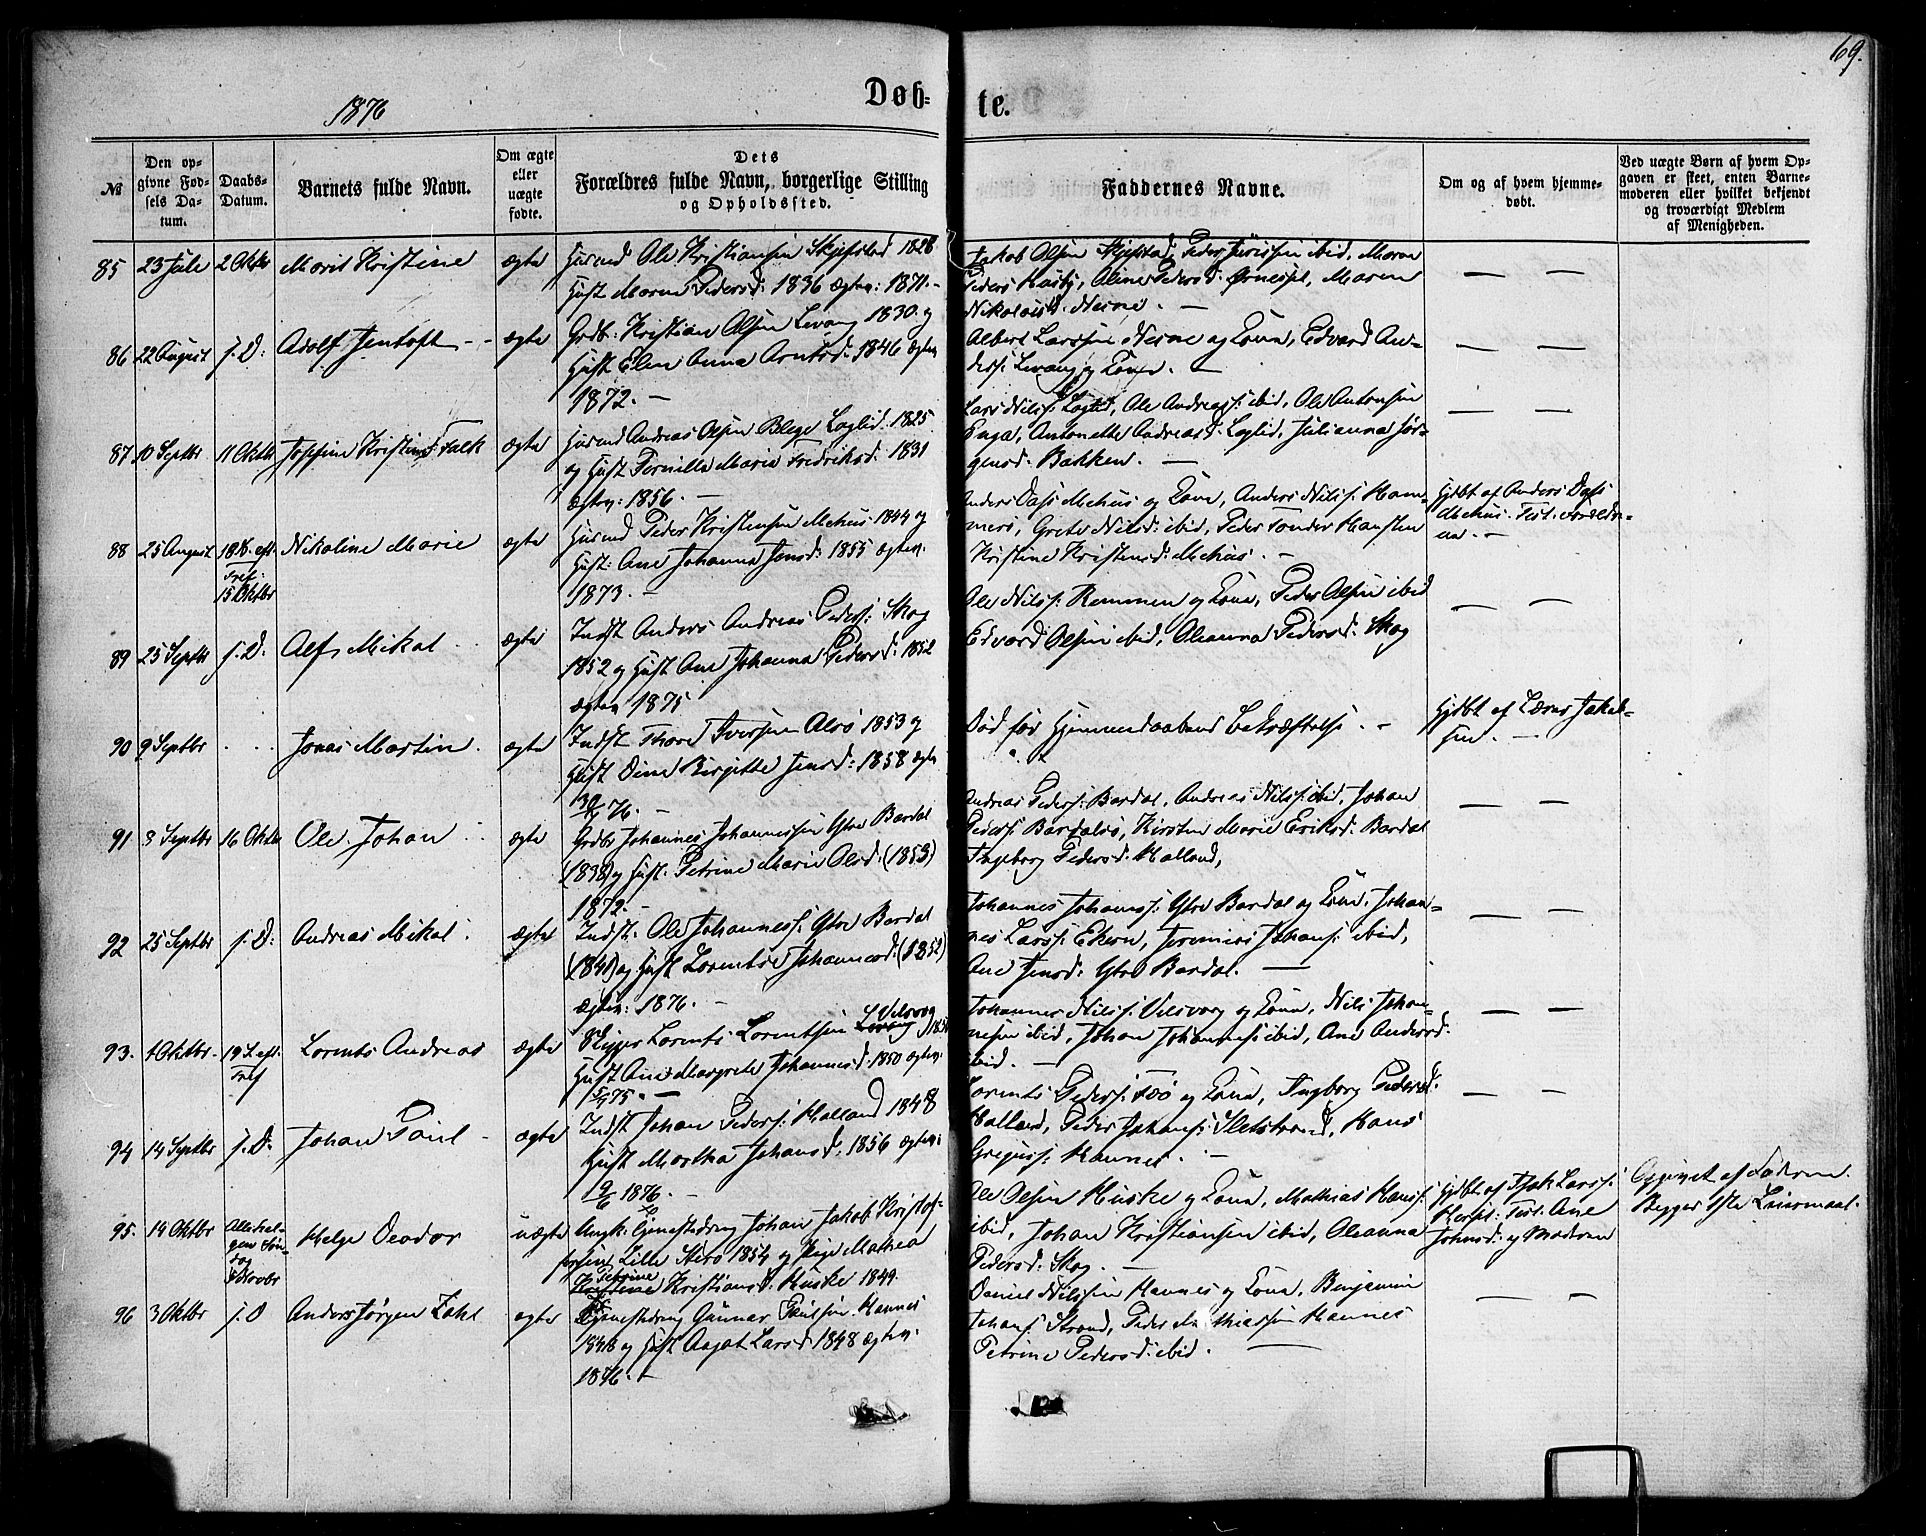 69.
1876
Døb-
te.
№
Den op-
givne Fød-
sels Da-
tum.
Daabs-
Datum.
Barnets fulde Navn.
Om ægte
eller
uægte
fødte.
Dets
Forældres fulde Navn, borgerlige Stilling
og Opholdssted.
Faddernes Navne.
Om og af hvem hjemme-
døbt.
Ved uægte Børn af hvem Op-
gaven er skeet, enten Barne-
moderen eller hvilket bekjendt
og troværdigt Medlem
af Menigheden.
85 23 Juli 2 Oktbr Marit Kristine ægte Husmd Ole Kristiansen Skjefstad 1828
Hust Maren Pedersd: 1836 Ægtev: 1871. -
Jakob Olsen Skjefstad, Peder ibid, Maren
Peders Husby, Oline Pedersd. Maren
Nikolaisd. Nesne. -
86 22 August s. D: Adolf Jentoft - - ægte Grdb. Kristian Olsen Levang 1830 og
Hust Elen Anna Arntsd: 1846 Ægtev
1872. -
Albert Larssen Nesne og Kone, Edvard An-
derss: Levang og Kone. -
87 10 Septbr 11 Oktbr Josefine Kristine Falk ægte Husmd Andreas Olsen Løglid. 1825
og Hust Pernille Marie Fredriksd: 1831
Ægtev: 1856. -
Lars Nilss: Løglid, Ole Andreass: ibid, Ole Antonsen
Enga, Antonette Andreasd. Løglid, Julianna Jør-
gensd. Bakken. -
88 25 August 18 S. eft.
Tref:
15 Oktbr
Nikoline Marie ægte Husmd Peder Kristensen Mehus 1844 og
Hust: Ane Johanna Jensd: 1855 Ægtev:
1873. -
Anders Dass Mehus og Kone, Anders Nilss: Ham-
nerø, Grete Nilsd: ibid, Peder Tønder Hansten
Kristine Kristensd: Mehus. -
Hjdbt af Anders Dass
Mehus. Test. Foreldre-
ne. -
89 25 Septbr s. D: Alf Mikal ægte Indst Anders Andreas Peders: Skog
1852 og Hust Ane Johanna Pedersd: 1852
Ægtev 1875
Ole Nilss: Remmen og Kone, Peder Olsen ibid
Edvard Olsen ibid, Oleanna Pedersd: Skog
90 9 Septbr . . . Jonas Martin ægte Indst Thore Iversen Alsø 1853 og
Hust Oline Birgitte Jensd: 1858 Ægtev
76. -
Død før Hjemmedaabens Bekræftelse. -
Hjdbt af Jakob-
sen. -
91 3 Septbr 16 Oktbr Ole Johan ægte Grdbr Johannes Johannessen Ytre Bardal
(1838) og Hust. Petrine Marie Olsd: (1853)
1872. -
Andreas Peders: Bardal, Andreas Nilss: ibid, Johan
Peders: Bardalsø, Kirsten Marie Eriksd. Bardal
Ingeborg Pedersd: Halland,
92 25 Septbr s. D: Andreas Mikal. ægte Indst: Ole Johanness: Ytre Bardal
(1848) og Hust Lorentse Johannesd: (1852)
Ægtev: 1876. -
Johannes Johanss: Ytre Bardal og Kone, Johan-
nes Larss: Ekern, Jeremias Johans: ibid,
Ane Jensd: Ytre Bardal. -
93. 1 Oktbr. 19 S. eft.
Tref
Lorents Andreas ægte Lorents Lorentsen Levang Vilsvog
Hust Ane Margrete Johannesd: 1850 Ægtev:
75. -
Johannes Nilss: Vilsvog og Kone, Nils Johan-
nesen ibid, Johan Johannes: ibid, Ane Andersd.
ibid. -
94 14 Septbr s. D: Johan Paul - ægte Indst Johan Peders: Halland 1848
Hust Martha Johansd. 1856 Ægtev:
9/6 1876. -
Lorents Peders: og Kone, Ingeborg Pedersd.
Halland, Peder Johans: Sletstrand, Hans
Greguss: Hannes. -
95. 14 Oktbr Allehel-
gen Søn-
dag
5 Novbr
Helge Teodor uægte Ungk. Tjenestedreng Johan Jakob Kristof-
fersen Lille Sterø 1854 og Pige Mathea
Petrine
Kristine Kristiansd: Huske 1849.
Ole Olsen Huske og Kone, Mathias Hanss:
ibid, Johan Kristiansen ibid, Oleanna
Pedersd. Skog. -
Hjdbt af Isak Larss:
Test. Ane
Johnsd: og Modren
Opgivet af Faderen.
Begges 1ste Leiermaal.
96 3 Oktbr s. D Anders Jørgen Zahl ægte Tjenestedreng Gunnar Paulsen. Hannes
1848 og Hust Aagot Larsd. 1848 Ægtev:
1876. -
Daniel Nilssen Hannes og Kone, Benjamin
Johans: Strand, Peder Mathiassen Hannes
Petrine Pedersd: ibid. -